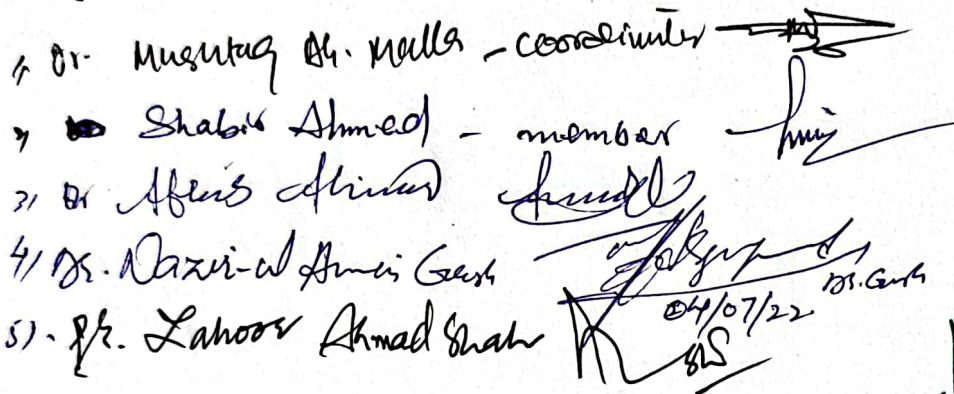 1) Dr. Mushtaq Ah. Malla - coordinator
2) Shabir Ahmed - member
3) Dr Ahmad
4) Dr. Nazir-ul Amin
Dr. Gash
04/07/22
5). Dr. Zahoor Ahmad Shah